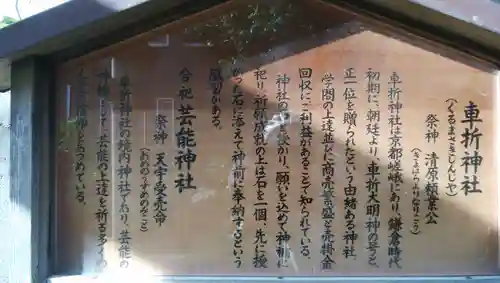 車折神社
(くるまざきじんじゃ)
祭神 清原頼業公
(きよはらよりなりこう)
車折神社は京都嵯峨にあり、鎌倉時代
初期に、朝廷より、車折大明神の号と、
正一位を贈られたという由緒ある神社。
学問の上達並びに商売繁盛と売掛金
回収にご利益があることで知られている。
神社の石を授かり、願いを込めて神棚に
祀り、祈願成就の上は石を一個、先に授
かった石に添えて神前に奉納するという
風習がある。
合祀 芸能神社
祭神 天宇受売命
(あめのうずめのみこと)
車折神社の境内神社であり、芸能の
芸能の上達を祈る多くの
集めている。